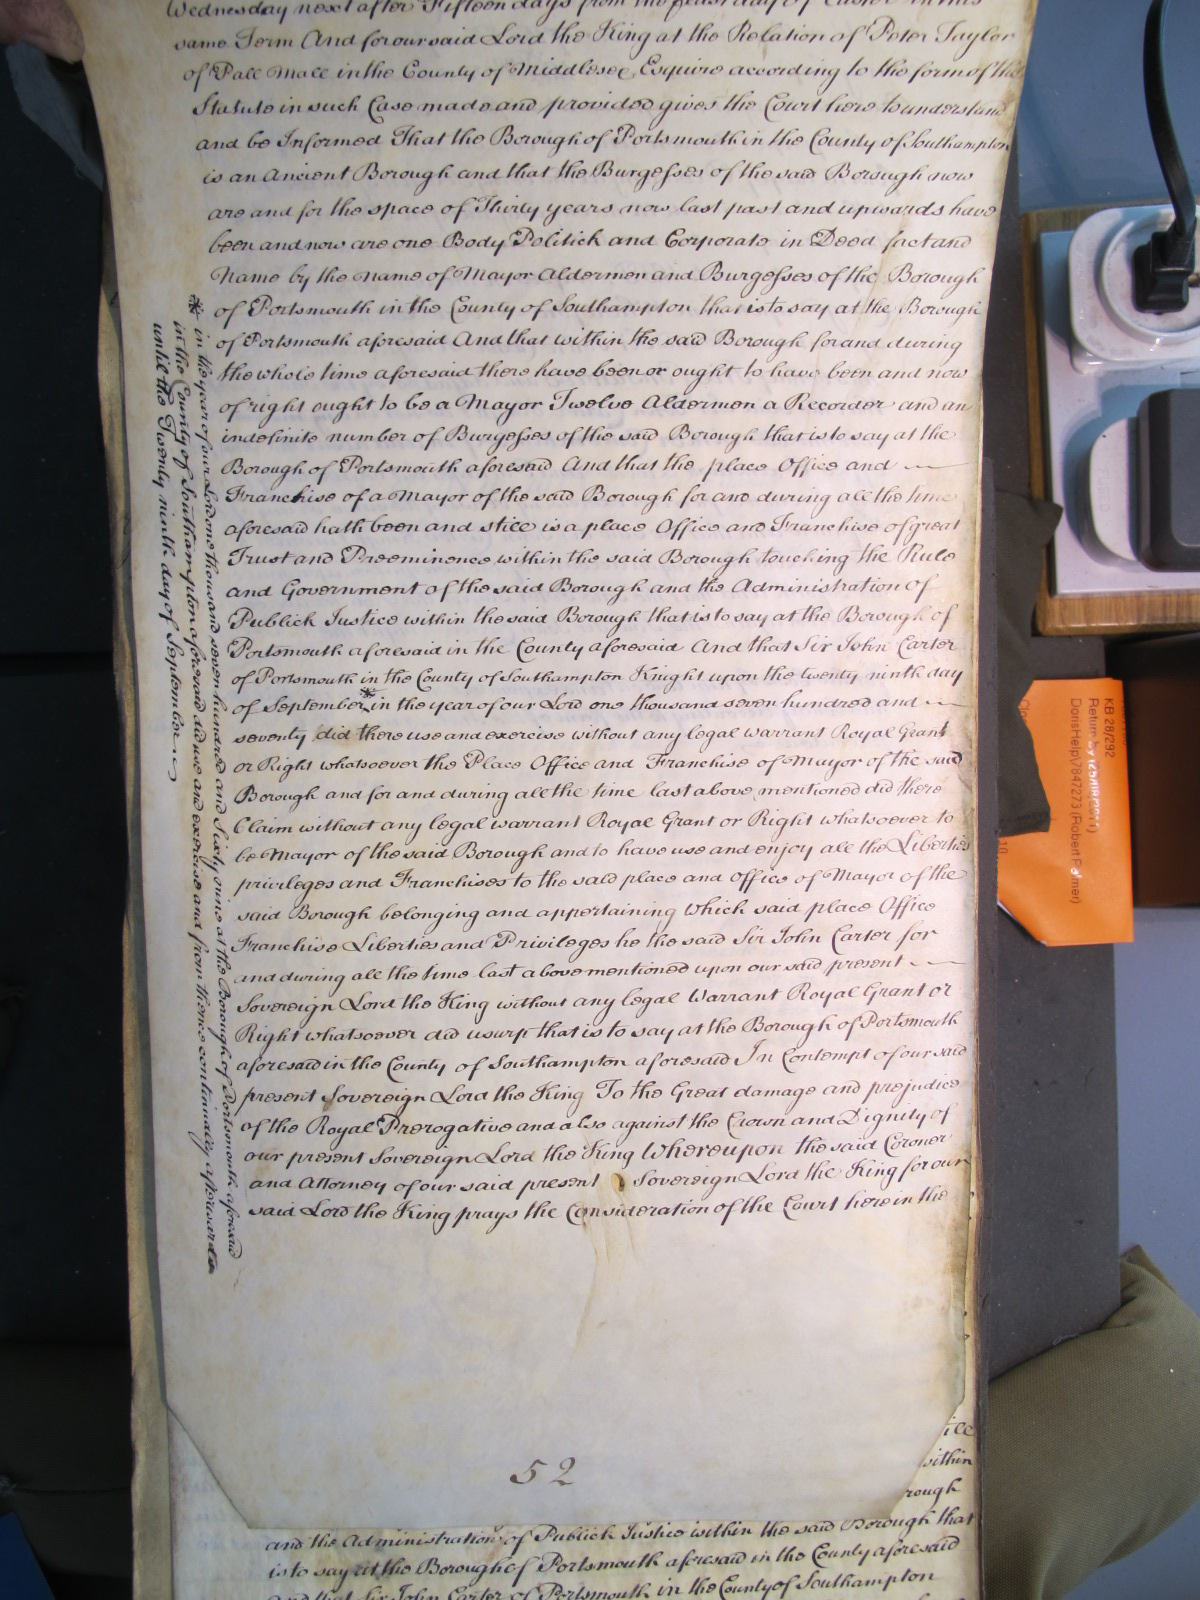 Wednesday next after Fifteen days from the feast day of Easter in this
same Term And for our said Lord the King at the Relation of Peter Taylor
of Pall Mall in the County of Middlesex Esquire according to the form of the
Statute in such Case made and provided gives the Court here to understand
and be Informed That the Borough of Portsmouth in the County of Southampton
is an Ancient Borough and that the Burgesses of the said Borough now
are and for the space of Thirty years now last past and upwards have
been and now are one Body Politick and Corporate in Deed fact and
Name by the name of Mayor Aldermen and Burgesses of the Borough
of Portsmouth in the County of Southampton that is to say at the Borough
of Portsmouth aforesaid And that within the said Borough for and during
the whole time aforesaid there have been or ought to have been and now
of right ought to be a Mayor Twelve Aldermen a Recorder and an
indefinite number of Burgesses of the said Borough that is to say at the
Borough of Portsmouth aforesaid And that the place Office and
Franchise of a Mayor of the said Borough for and during all the time
aforesaid hath been and still is a place Office and Franchise of great
Trust and Preeminence within the said Borough touching the Rule
and Government of the said Borough and the Administration of
Publick Justice within the said Borough that is to say at the Borough of
Portsmouth aforesaid in the County aforesaid And that Sir John Carter
of Portsmouth in the County of Southampton Knight upon the twenty ninth day
of September * in the year of our Lord one thousand seven hundred and
seventy did there use and exercise without any legal warrant Royal Grant
or Right whatsoever the Place Office and Franchise of Mayor of the said
Borough and for and during all the time last above mentioned did there
Claim without any legal warrant Royal Grant or Right whatsoever to
be Mayor of the said Borough and to have use and enjoy all the Liberties
privileges and Franchises to the said place and office of Mayor of the
said Borough belonging and appertaining which said place Office
Franchise Liberties and Privileges he the said Sir John Carter for
and during all the time last above mentioned upon our said present
Sovereign Lord the King without any legal Warrant Royal Grant or
Right whatsoever did usurp that is to say at the Borough of Portsmouth
aforesaid in the County of Southampton aforesaid In Contempt of our said
present Sovereign Lord the King To the Great damage and prejudice
of the Royal Prerogative and also against the Crown and Dignity of
our present Sovereign Lord the King Whereupon the said Coroner
and Attorney of our said present Sovereign Lord the King for our
said Lord the King prays the Consideration of the Court here in the
* in the year of our Lord one thousand seven hundred and Sixty nine at the Borough of Portsmouth aforesaid
in the County of Southampton aforesaid did use and exercise and from thence continually afterwards
until the Twenty ninth day of September
52
ile
within
rough
and the Administration of Publick Justice within the said Borough that
is to say at the Borough of Portsmouth aforesaid in the County aforesaid
and that Sir John Carter of Portsmouth in the County of Southampton
KB 28/292
Return by (25/08/2011)
DorisHelp\7847273 (Robert Palmer)